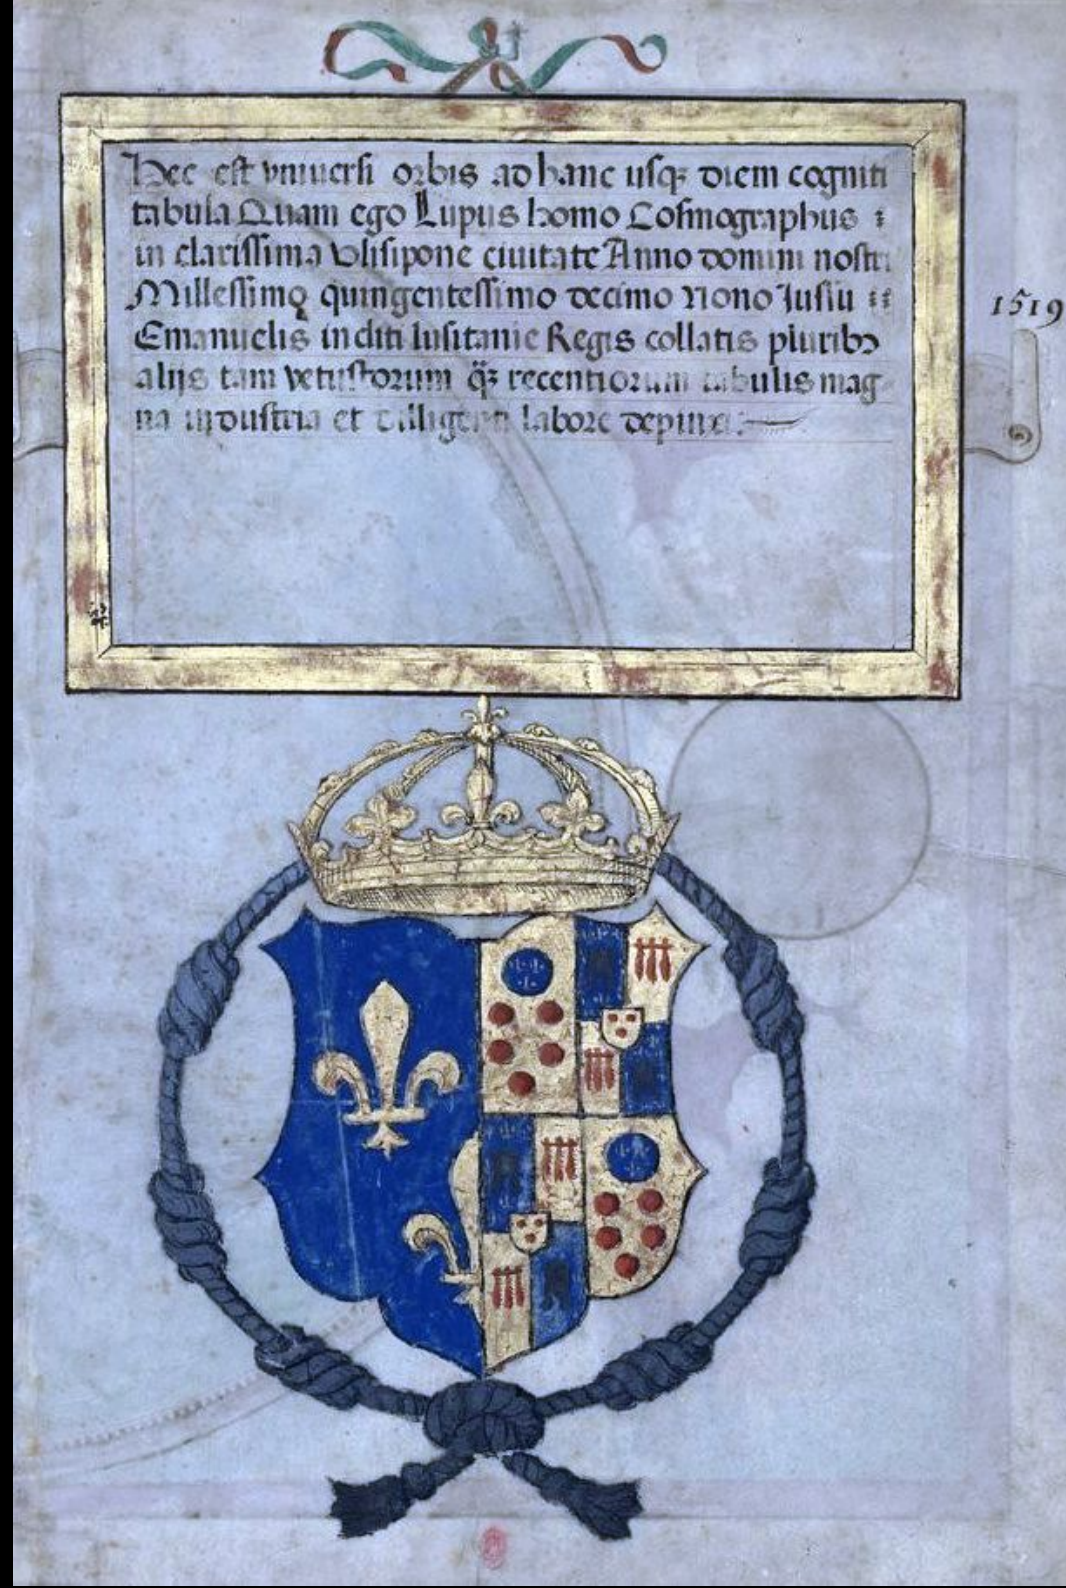 Hec est vniuersi orbis ad hanc usqȝ diem cogniti
tabula Quam ego Lupus homo Cosmographus :
in clarissima Vlisipone ciuitate Anno domini nostri
Millessimo quingentessimo decimo nono Iussu ::
Emanuelis incliti lusitanie Regis collatis pluribꝰ
alijs tam vetustorum qȝ recentiorum tabulis mag
na industria et dilligenti labore depinxi :
1519